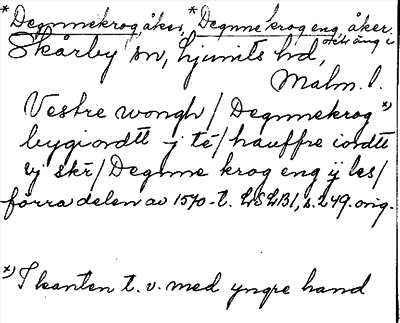 *Degnnekrog, åker, *Degnne krog eng åker
och äng i
Skårby sn, Ljunits hd,
Malm. l.
Vestre wongh / Degnnekrog *)
bygiordtt j té / hauffre iordtt
vj skr / Degnne krog eng ij les /
förra delen av 1570-t. LSLB1, s. 249. orig.
*) I kanten t. v. med yngre hand